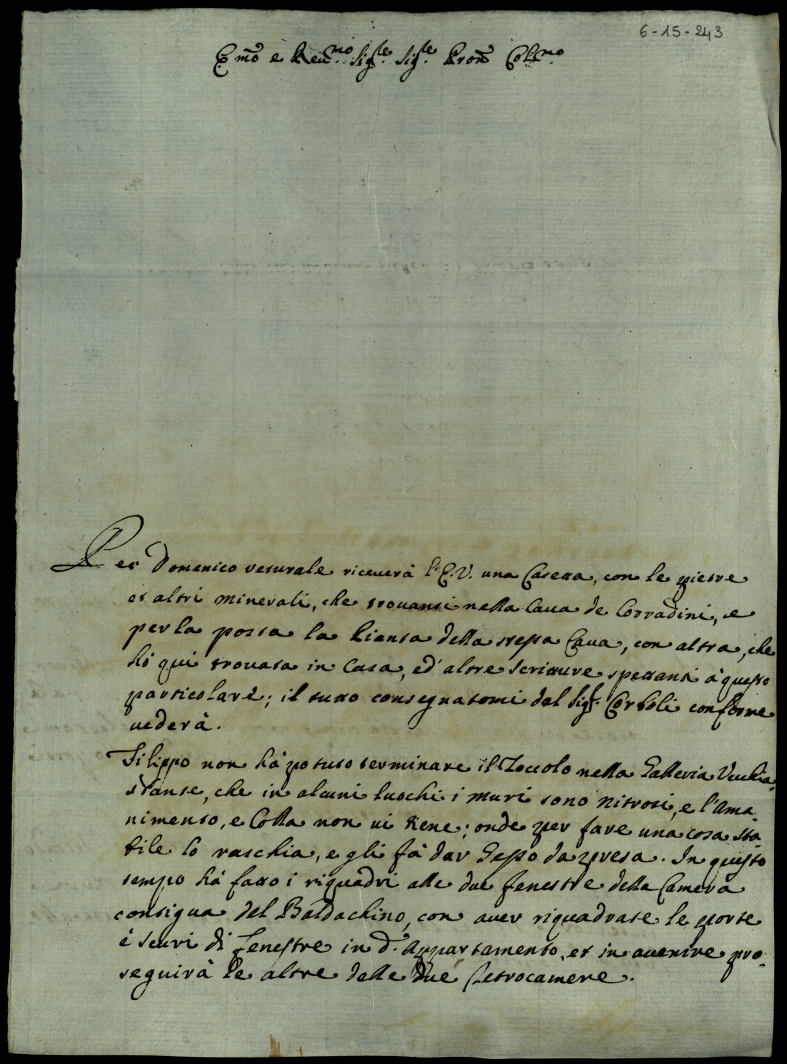 6-15-243
Emo è Reu.mo Sig.re Sig.re Pron Col.mo
Per Domenico veturale riceuerà l'E.V. una Casetta, con le pietre
et altri minerali, che trouansi nella Caua de Corradini, e
per la posta la Pianta della stessa Caua, con altra, che
hò qui trouata in Casa, ed' altre scritture spettanti à questo
particolare; il tutto consegnatomi dal Sig.r Corboli conforme
uederà.
Filippo non hà potuto terminare il Zoccolo nella Galleria Vecchia
stante, che in alcuni luochi i muri sono nitrosi, e l'Ama-
nimento, e Colla non ui tiene; onde per fare una cosa sta-
bile lo raschia, e gli fà dar Gesso da presa. In questo
tempo hà fatto i riquadri alle due fenestre della Camera
contigua del Baldachino, con auer riquadrate le porte
è scuri di fenestre in d.o Appartamento, et in auenire pro-
seguirà le altre delle due Retrocamere.